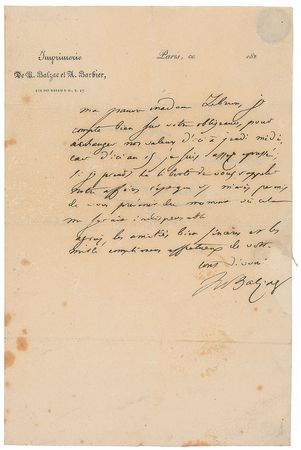 Imprimerie
De H. Balzac et A. Barbier,
RUE DES MARAIS S.-G., N. 17.
Paris, ce 182
ma pauvre madame Lebrun, je
compte bien sur votre obligeance, pour
échanger nos valeurs d'ici à jeudi midi,
car d'ici au 15 je suis
si je prends la liberté de vous rappeler
notre affaire c'est que j'
de vous prévenir du moment où cela
me
agréez, les amitiés bien sincères et les
mille compliments affectueux de votre
tout dévoué
H Balzac